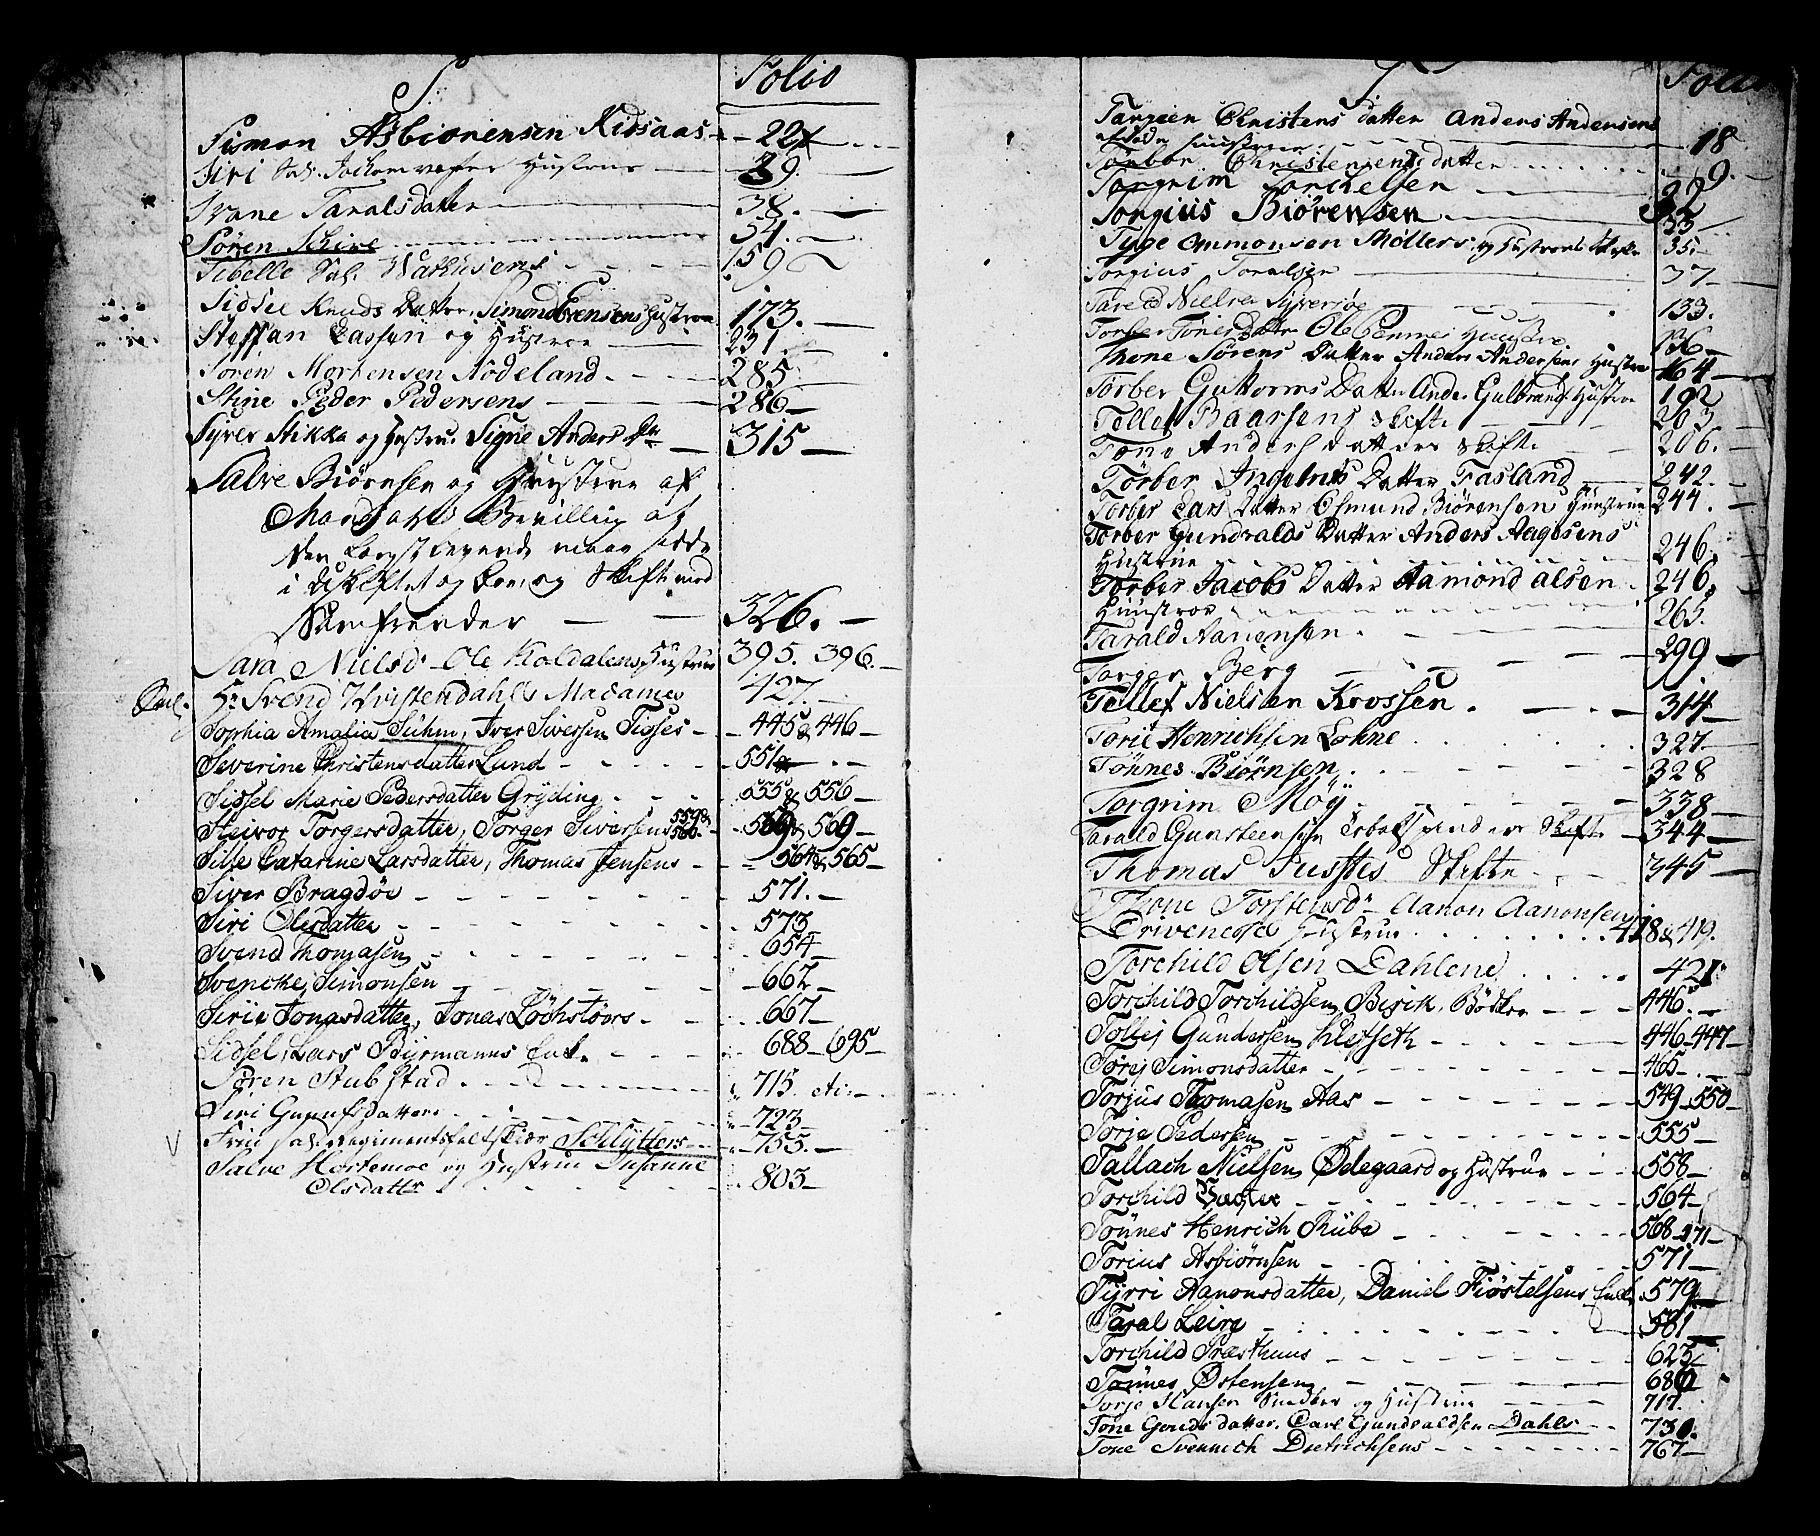 S Folio
Simon Asbiörensen Kidsaas 22
Siri Sal. Jochom Hustrues 39.
Svane Taralsdatter 38.
Sören Schive 54.
Sibelle Sal. Wathnesens 159
Sidsel Knuds Datter, Simond Evensens Hustroe 173.
Steffan Lassen og Hustroe 231.
Sören Mortensen Rödeland 285
Stine Peder Pedersens 286
Syver Stikka og Hustru Signe Anders Dtr 315
Salve Biörnsen og Hustrue af
Mandals Bevilling at
den Længstlevende maae sidde
i Uskiftet og Skifte med
Samfrænder 326.
Sara Nielsd. Ole Koldalens Hustrue 395. 396.
Hr Svend Christendahls Madames 427.
Sophia Amalia Suhm, Iver Siversen Tisses 445 & 446
Severine Christensdatter Lund 551
Sidsel Marie Pedersdatter Gryding 555 & 556
Steivor Torgersdatter, Torger Siversens 559 & 560 559 & 560
Sille Catarine Larsdatter, Thomas Jensens 564 & 565
Siver Bragdöe 571.
Siri Olesdatter 573
Svend Thomasen 654
Svencke Simonsen 662
Sirie Jonasdatter, Jonas Löchstöers 667
Sidsel, Lars Byrmanns Enke 688 695
Sören Stubstad 715.
Siri Gunufsdatters 723
Frue sal. Regimentsfeltskiær Schlytters 755.
Salve Hortemoe og Hustrue Susanne
Olsdatter 803
T Folio
Targien Christens Datter Anders Andersens
Hustroe 18
Torbor Christensens datter 19.
Torgrim Torchelsen 22
Torgius Biörensen 33
Tyge Ommonsen Möllers og Hustroes Skifte 35.
Torgius Toralsen 37
Tarald Nielsen Syversöe 133.
Torber Toriesdatter Ole Penne Hustrue 136
Thone Sörens Datter Anders Andersens Hustroe 164
Torber Guttorms Datter And. Gulbrands Hustroe 192
Tollef Baarsens Skifte 203
Tone Anders Datters Skifte 206.
Törber Ingebrets Datter Fasland 242.
Torber Lars Datter Osmund Biörensen Hustrue 244.
Torber Gundvalds Datter Anders Aagesens
Hustrue 246.
Törber Jacobs Datter Aamond Alsen 246.
Huustroe 265.
Tarald Aanensen 299
Torger Berg
Tellef Nielsen Krossen 314
Torie Henrichsen Lohne 327
Tönnes Biörnsen 328
Torgrim Möy 338
Tarald Gunsteensen Skifte 344
Thomas Tufstes Skifte 345
Thone Torstensd. Aanon Aanonsen
Hustrue 418 & 419.
Torchild Olsen Dahlene 421
Torchild Torchildsen Birik, Bödker 446.
Tollef Gundersen Kleffseth 446 447
Törij Simonsdatter 465
Torjus Thomasen Aas 549 550
Torje Pedersen 555
Tallach Nielsen Ödegaard og Hustrue 558
Torchild 564
Tönnes Henrich Kube 568 571
Torius Asbiörnsen 571
Tyrri Aanonsdatter, Daniel Fiöstelsens Enke 579
Taral Leire 581
Torchild Præsthuus 623
Tönnes Östensen 680
Torje Hansen Snedker og Hustrue 717.
Tone Gouds datter, Carl Gundvaldsen Dahls 730.
Tone Svennich Dietrichsens 767